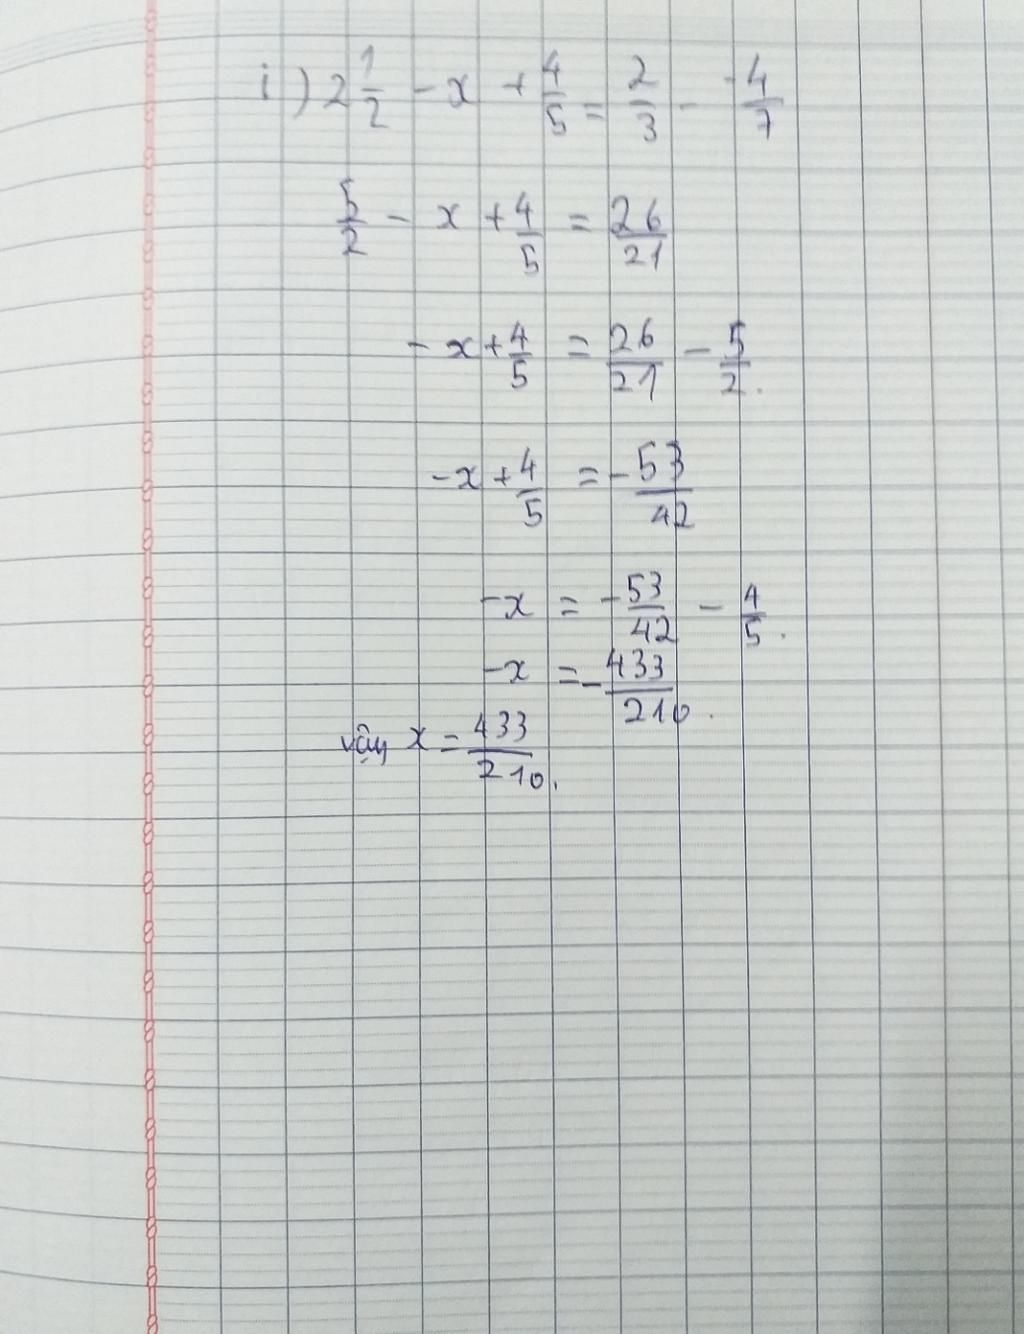 i) 2 1/2 - x + 4/5 = 2/3 - -4/7
5/2 - x + 4/5 = 26/21
- x + 4/5 = 26/21 - 5/2.
- x + 4/5 = - 53/42
- x = - 53/42 - 4/5.
- x = - 433/210.
vậy x = 433/210.